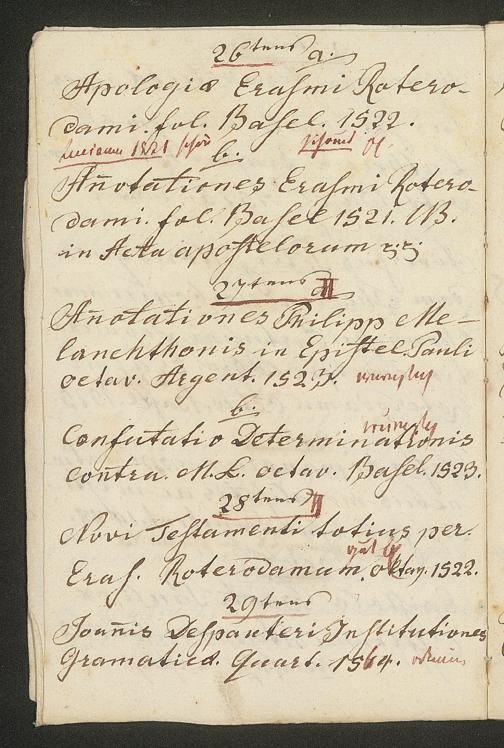 26tens a.
Apologiæ Erasmi Rotero-
dami. fol. Basel. 1522.
1521
b.
Añotationes Erasmi Rotero-
dami. fol. Basel 1521. NB.
in Acta apostelorum
27tens a
Añotationes Philipp Me-
lanchthonis in Epistel Pauli
octav. Argent. 1523.
b.
Confutatio Determinationis
contra. M.L. octav. Basel. 1523.
28tens
Novi Testamenti totius per.
Eras. Roterodamum, oktav. 1522.
29tens
Joañis Despauteri Institutiones
Gramaticæ. Quart. 1564.